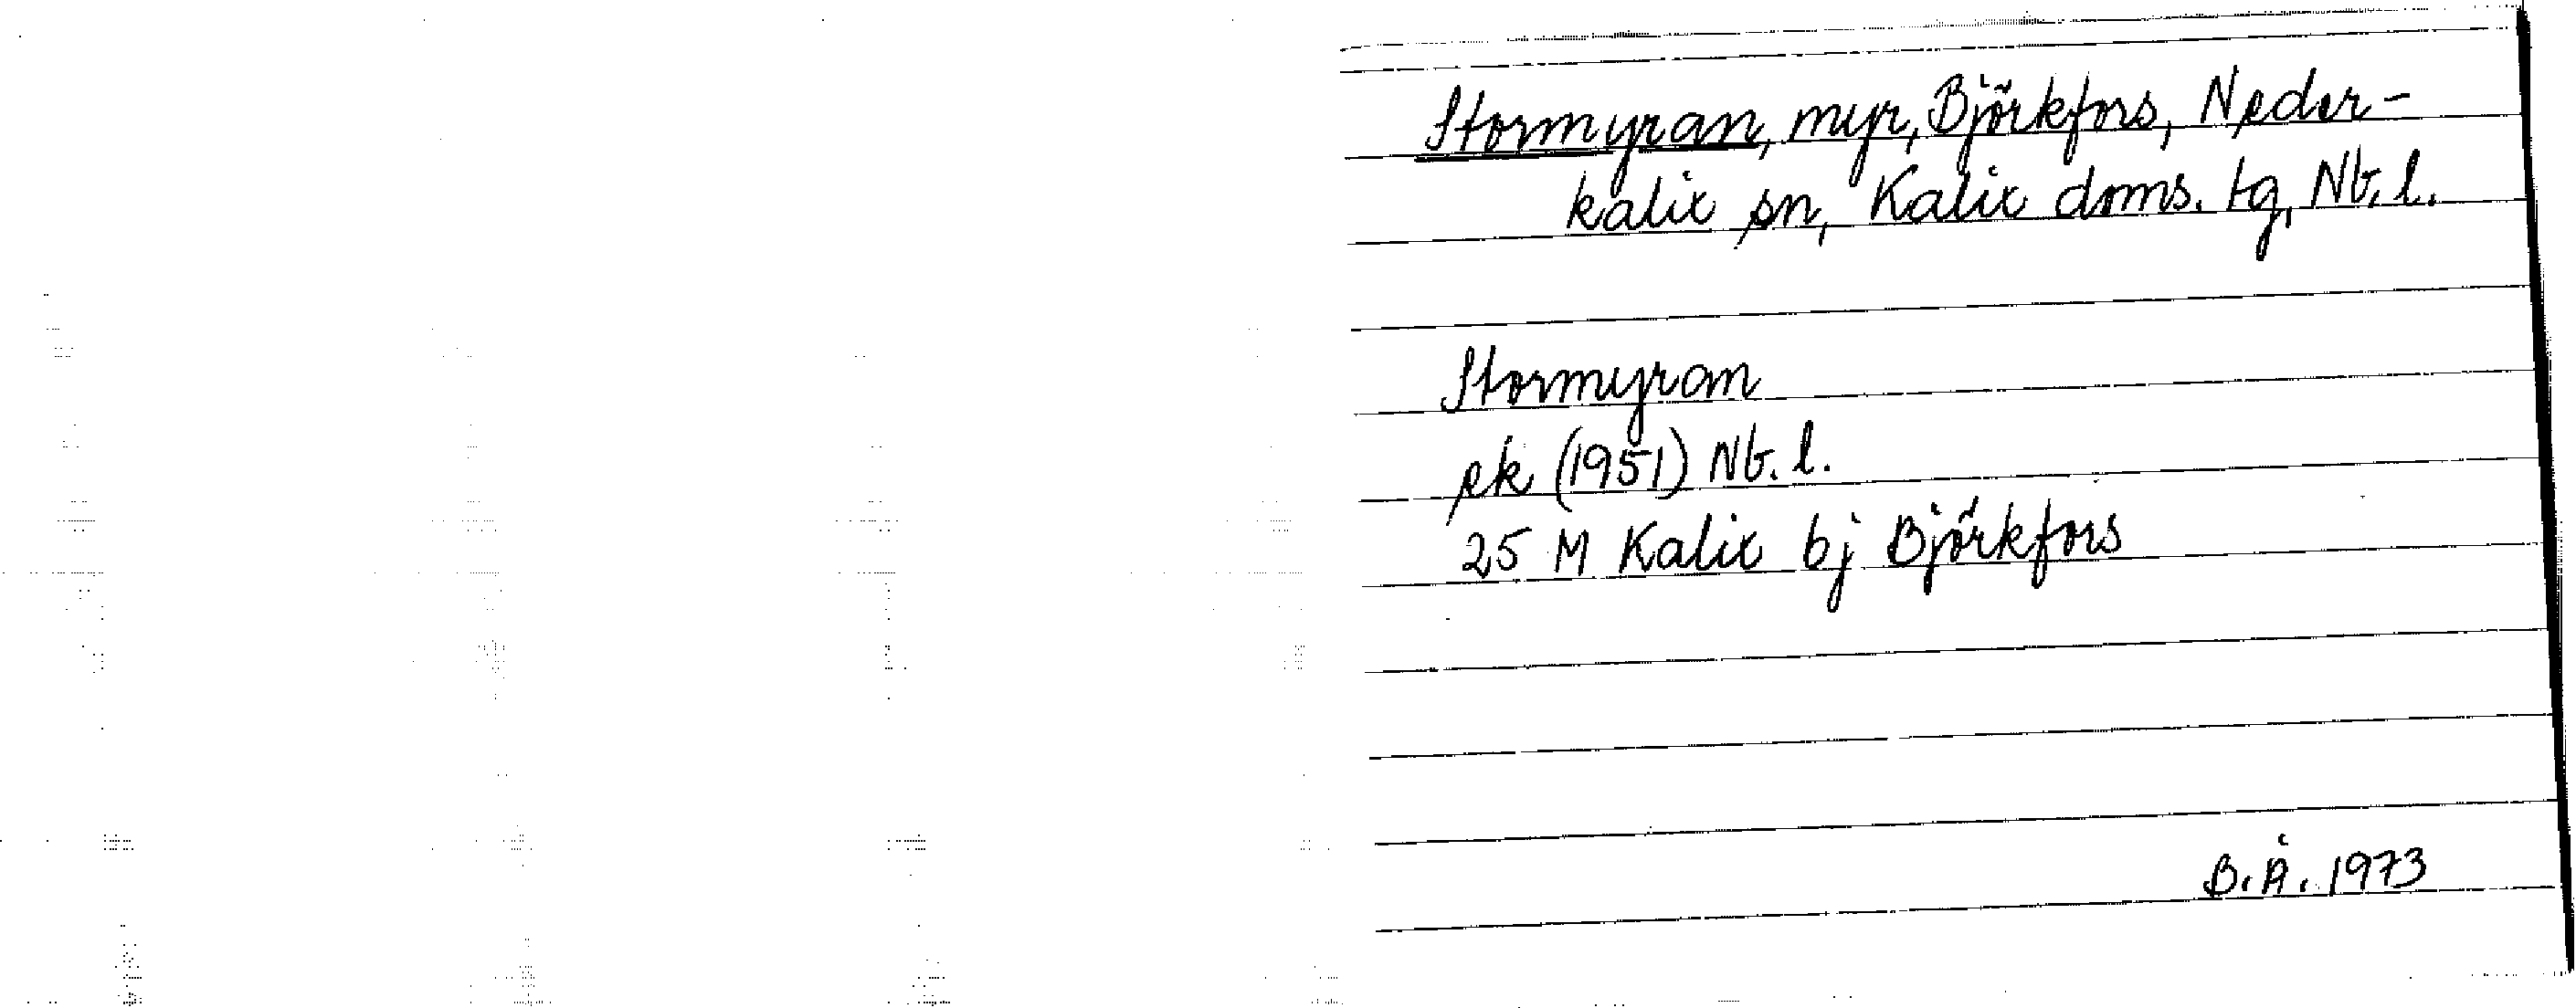 Stormyran, myr, Björkfors, Neder-
kalix sn, Kalix doms. tg, Nb. l.
Stormyran
ek (1951) Nb. l.
25 M Kalix bj Björkfors
B.Å. 1973